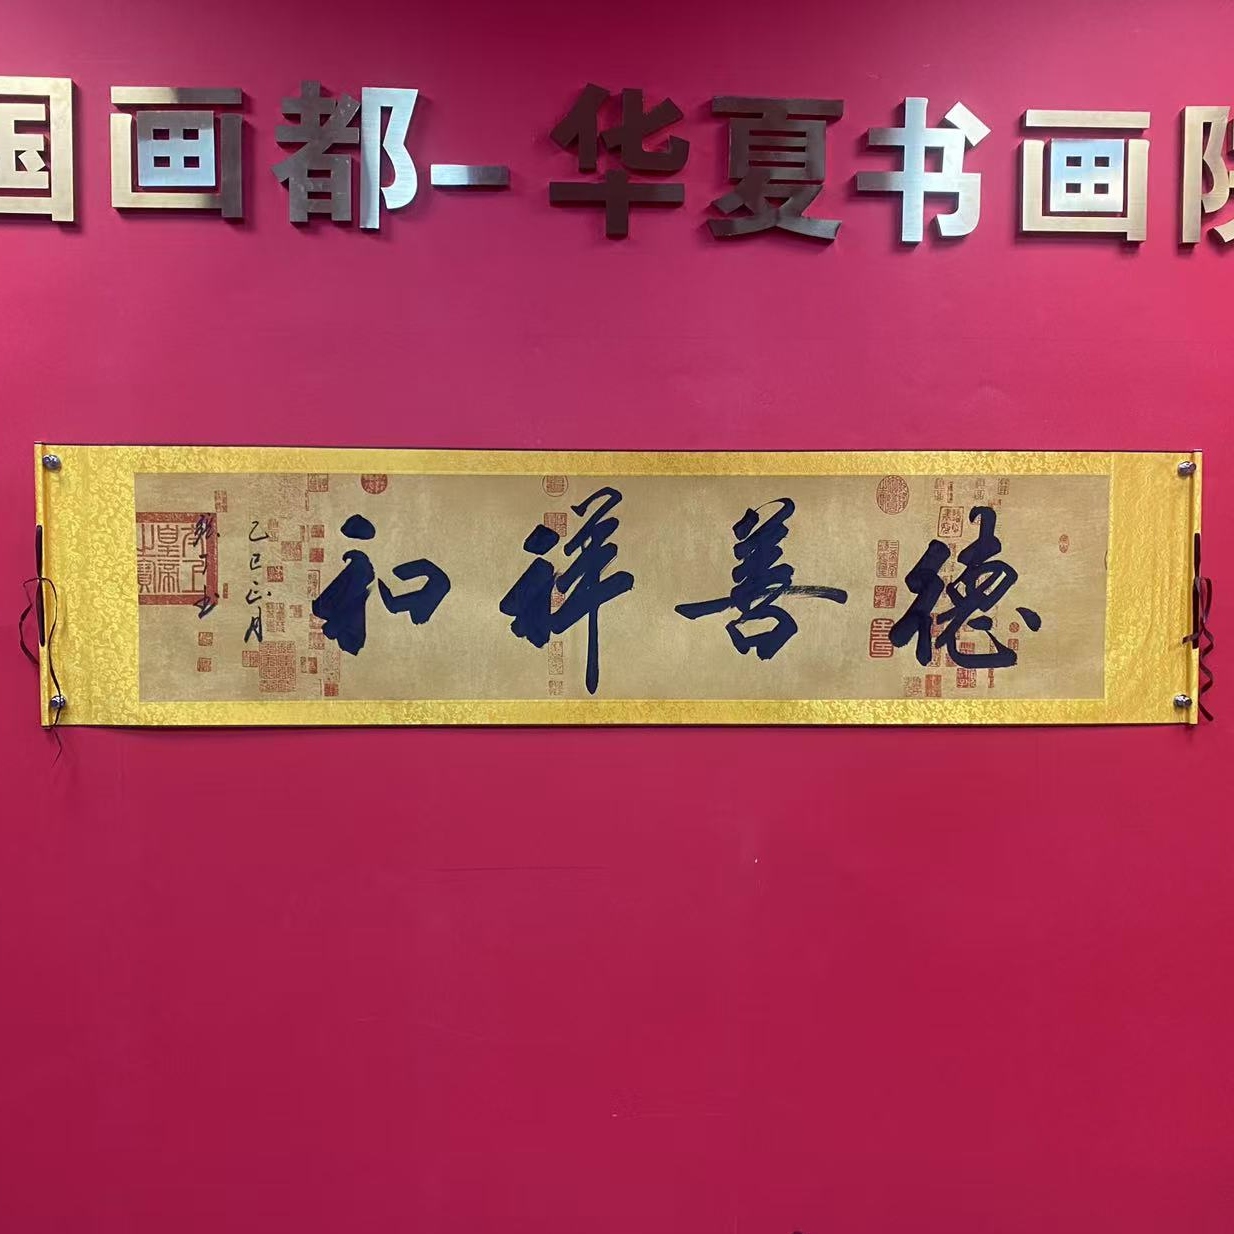 国画都-华夏书画院
德善祥和
乙巳正月